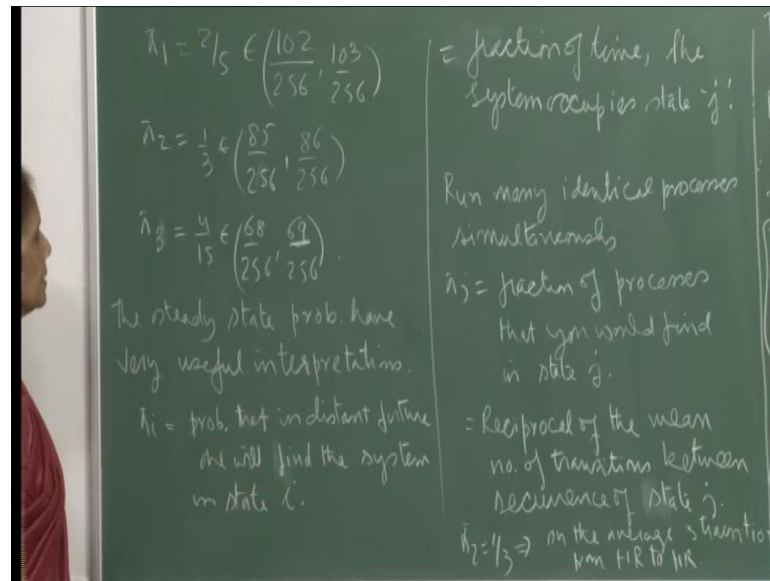 π1 = 2/5 ∈ (102/256, 103/256)
π2 = 1/3 ∈ (85/256, 86/256)
π3 = 4/15 ∈ (68/256, 69/256).
The steady state prob. have
very useful interpretations.
πi = prob. that in distant future
one will find the system
in state i.
= fraction of time, the
system occupies state 'j'.
Run many identical processes
simultaneously
πj = fraction of processes
that you would find
in state j.
= Reciprocal of the mean
no. of transitions between
recurrence of state j.
π2 = 1/3 ⇒ on the average 3 transition
from HR to HR